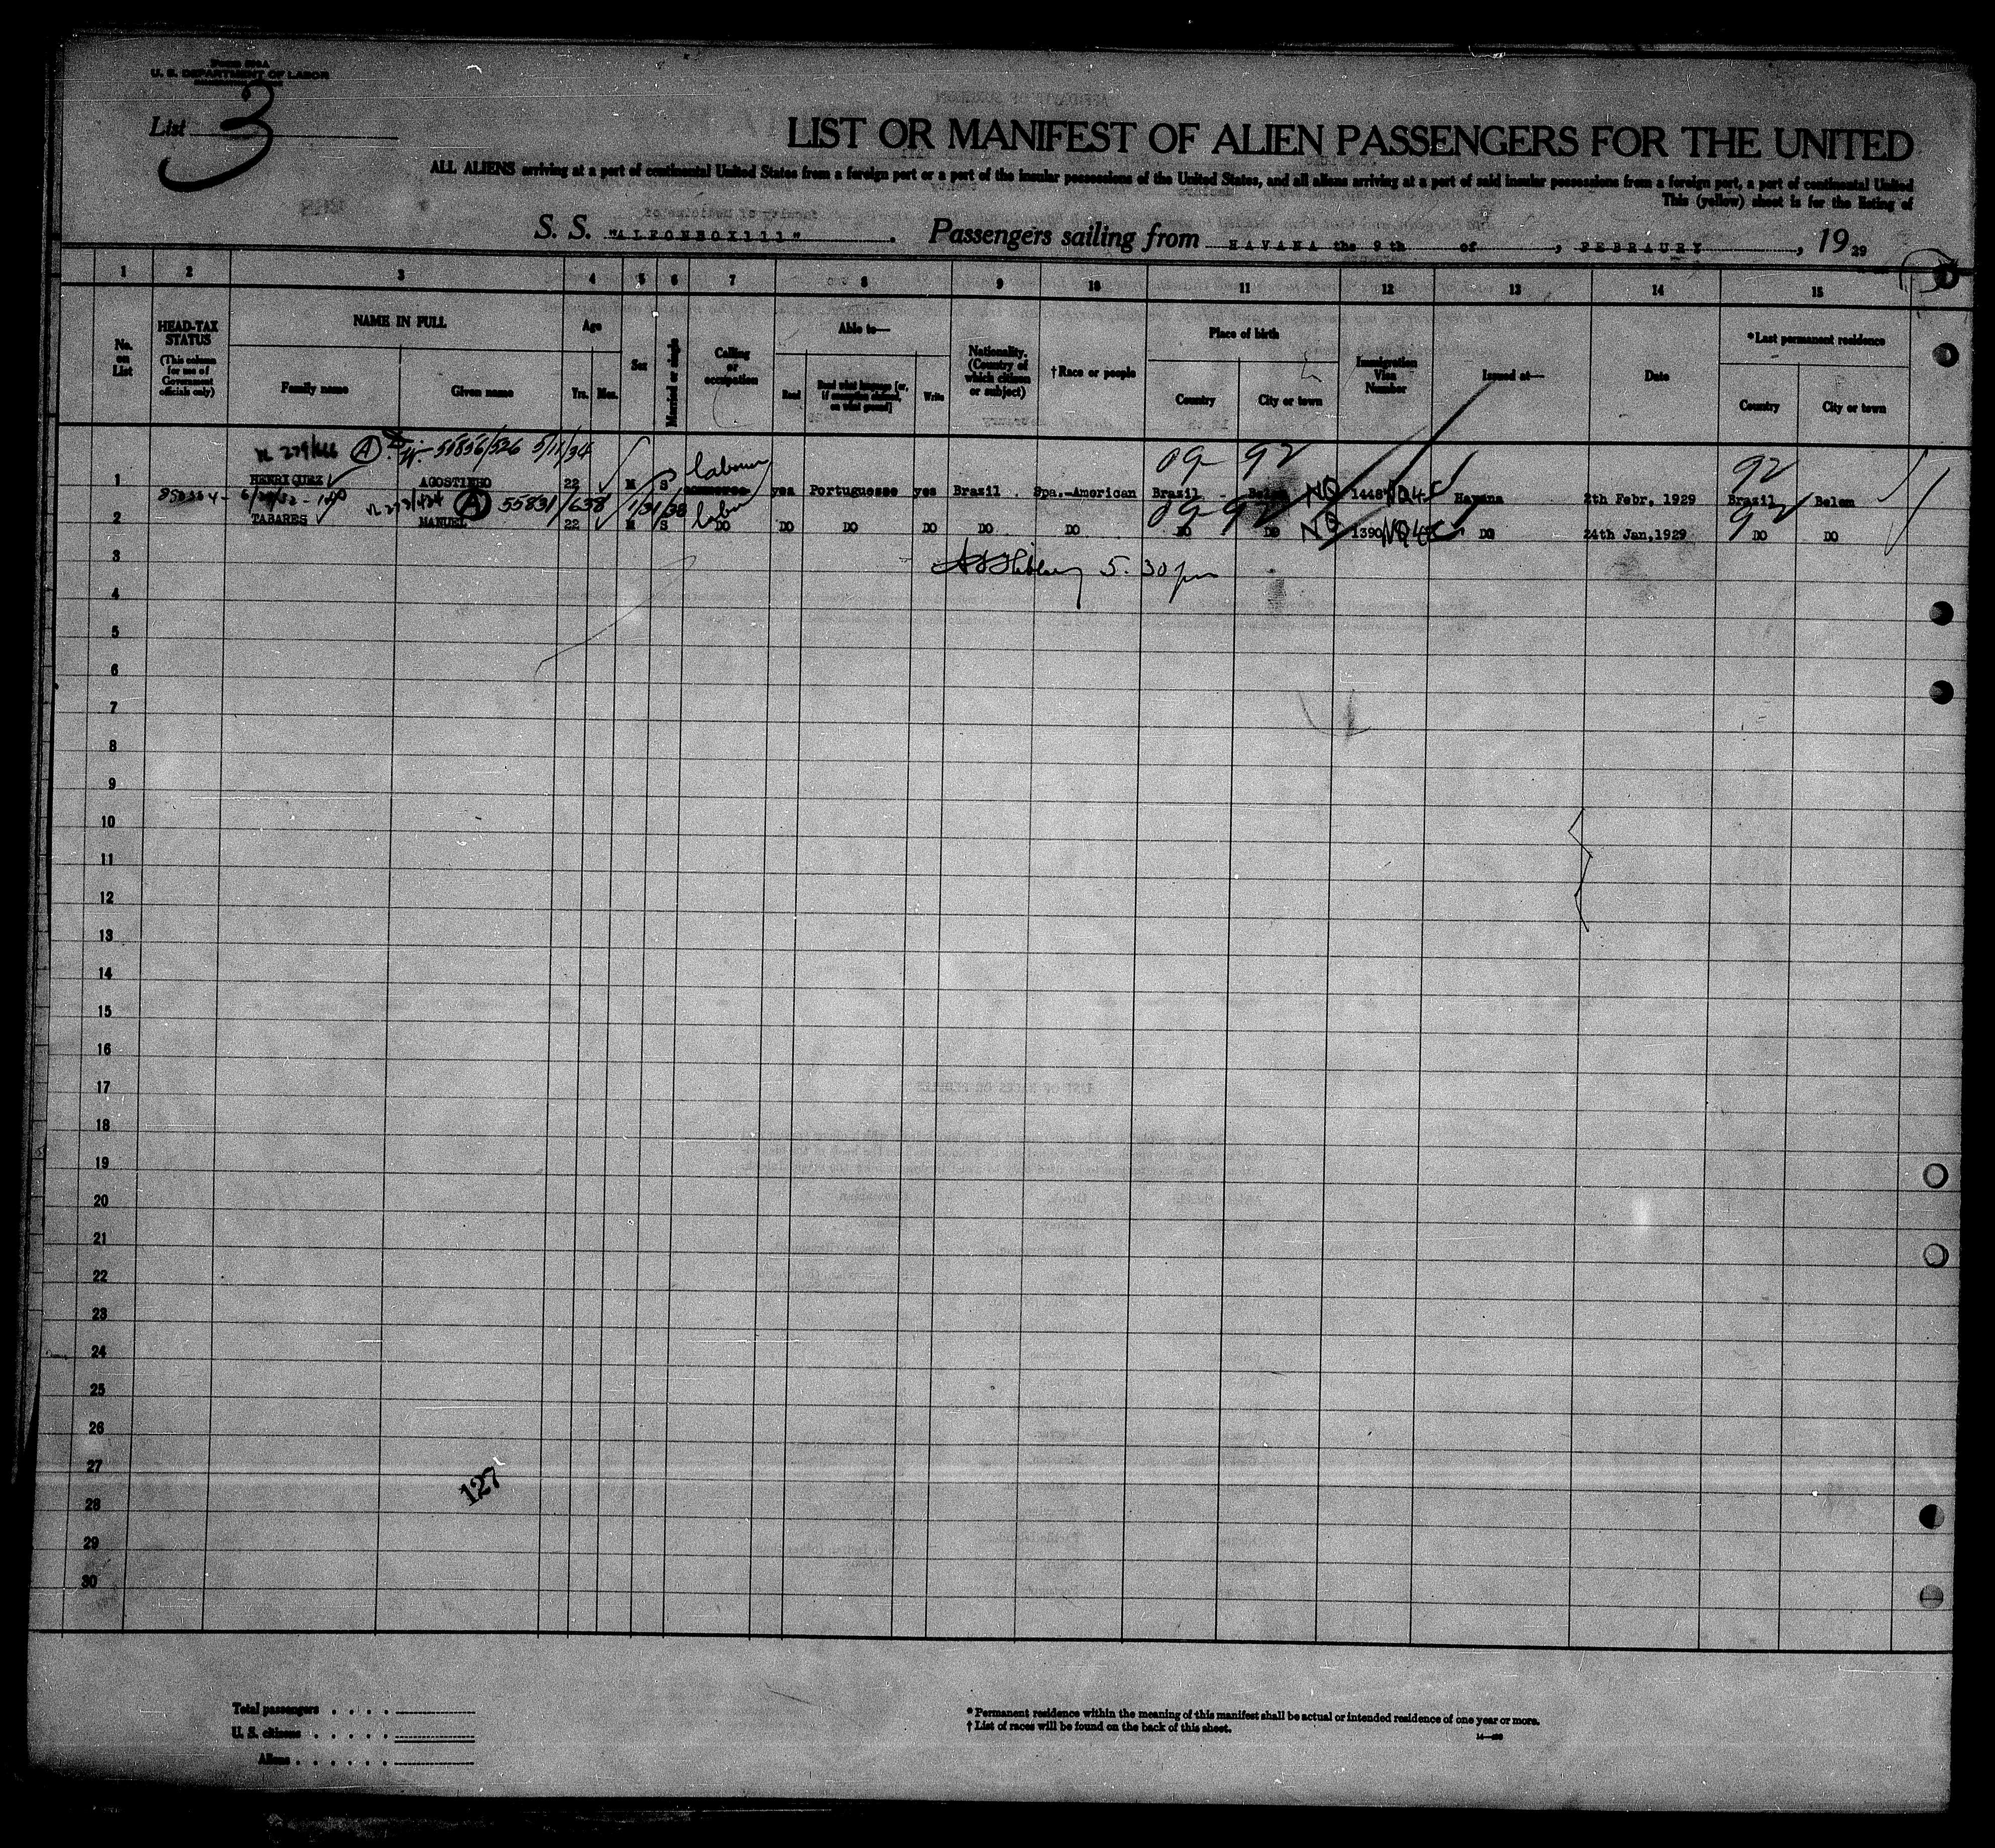 Form 500A
U. S. DEPARTMENT OF LABOR
List 3
LIST OR MANIFEST OF ALIEN PASSENGERS FOR THE UNITED
ALL ALIENS arriving at a port of continental United States from a foreign port or a port of the insular possessions of the United States, and all aliens arriving at a port of said insular possessions from a foreign port, a port of continental United
This (yellow) sheet is for the listing of
S. S. "ALFONSOX111". Passengers sailing from HAVANA the 9 th of, FEBRAURY, 1929
1 2 3 4 5 6 7 8 9 10 11 12 13 14 15
No. on List
HEAD-TAX STATUS (This column for use of Government officials only)
NAME IN FULL
Family name
Given name
Age
Yrs. Mos.
Sex
Married or single
Calling or occupation
Able to—
Read
Read what language [or, if exemption claimed, on what ground]
Write
Nationality. (Country of which citizen or subject)
† Race or people
Place of birth
Country
City or town
Immigration Visa Number
Issued at—
Date
*Last permanent residence
Country
City or town
(A) 55856/526 5/11/34
labourer 09 92 92
1 HENRIQUEZ AGOSTINHO 22 M S yes Portuguese yes Brazil Spa.-American Brazil Belem NQ 1448 NQ4C Havana 2th Febr, 1929 Brazil Belem
(A) 55831/638 1/31/33 labor 09 92 92
2 TABARES MANUEL 22 M S DO DO DO DO DO DO DO DO NQ 1390 NQ4C DO 24th Jan,1929 DO DO
3
5.30 pm
4
5
6
7
8
9
10
11
12
13
14
15
16
17
18
19
20
21
22
23
24
25
26
27
127
28
29
30
Total passengers . . . .
U. S. citizens . . . . .
Aliens . . . . . .
* Permanent residence within the meaning of this manifest shall be actual or intended residence of one year or more.
† List of races will be found on the back of this sheet.